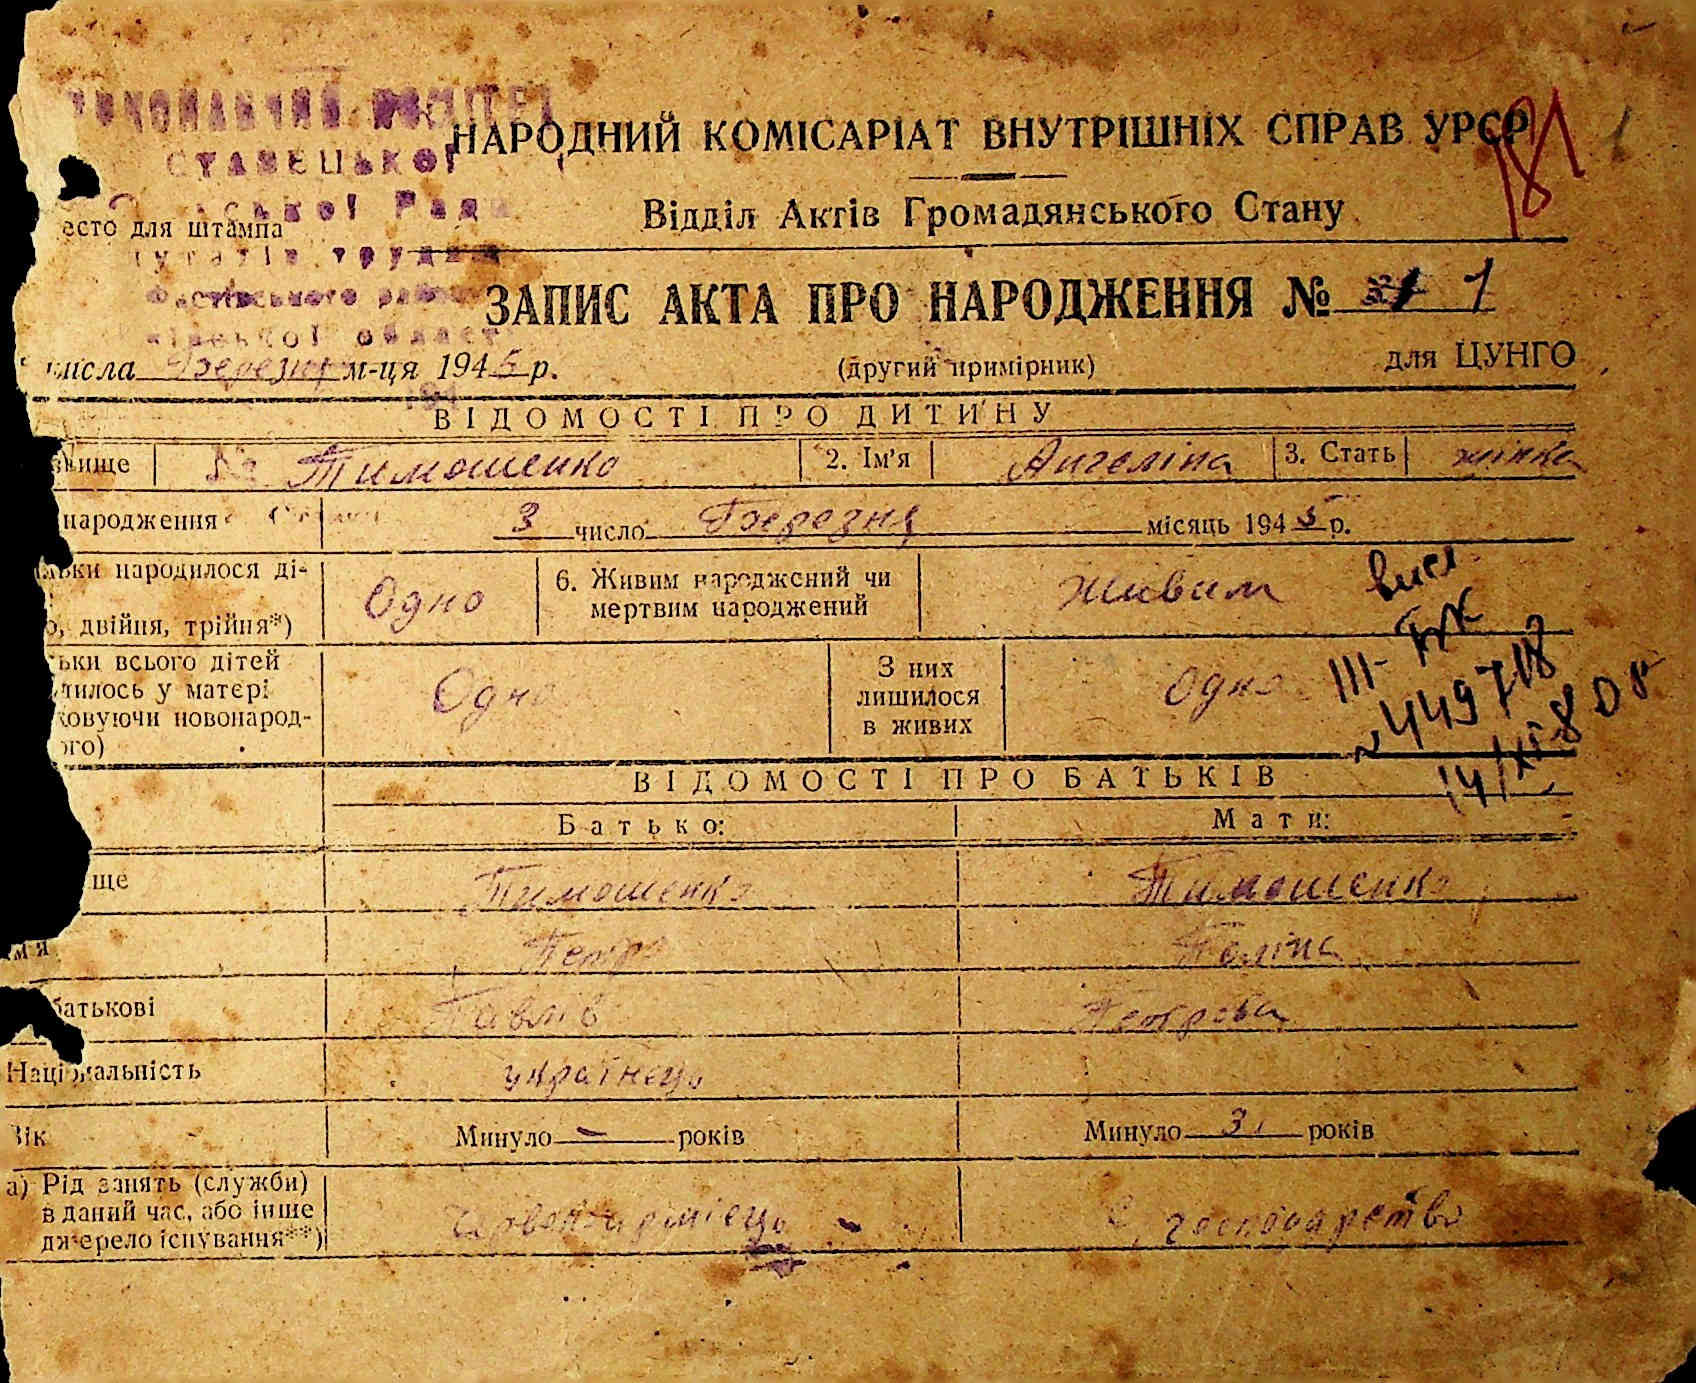 СТАВЕЦЬКОЇ
НАРОДНИЙ КОМІСАРІАТ ВНУТРІШНІХ СПРАВ УРСР
181
Ради
есто для штампа
Відділ Актів Громадянського Стану
Фастівського
ЗАПИС АКТА ПРО НАРОДЖЕННЯ № 1
числа Березня м-ця 1945 р.
(другий примірник)
для ЦУНГО
ВІДОМОСТІ ПРО ДИТИНУ
звище Тимошенко 2. Ім'я Ангеліна 3. Стать жінка
народження 3 число Березня місяць 1945 р.
льки народилося ді-
о, двійня, трійня*)
Одно
6. Живим народжений чи
мертвим народжений
живим
льки всього дітей
дилось у матері
ховуючи новонарод-
ого)
Одно
З них
лишилося
в живих
Одно
III-БК
№449718
14/XI-80 р
ВІДОМОСТІ ПРО БАТЬКІВ
Батько: Мати:
ище Тимошенко Тимошенко
м'я Петро Поліна
батькові Павлів Петрова
Національність українець
Вік Минуло — років Минуло 3 років
а) Рід занять (служби)
в даний час, або інше
джерело існування**)
червоноармієць
господарство